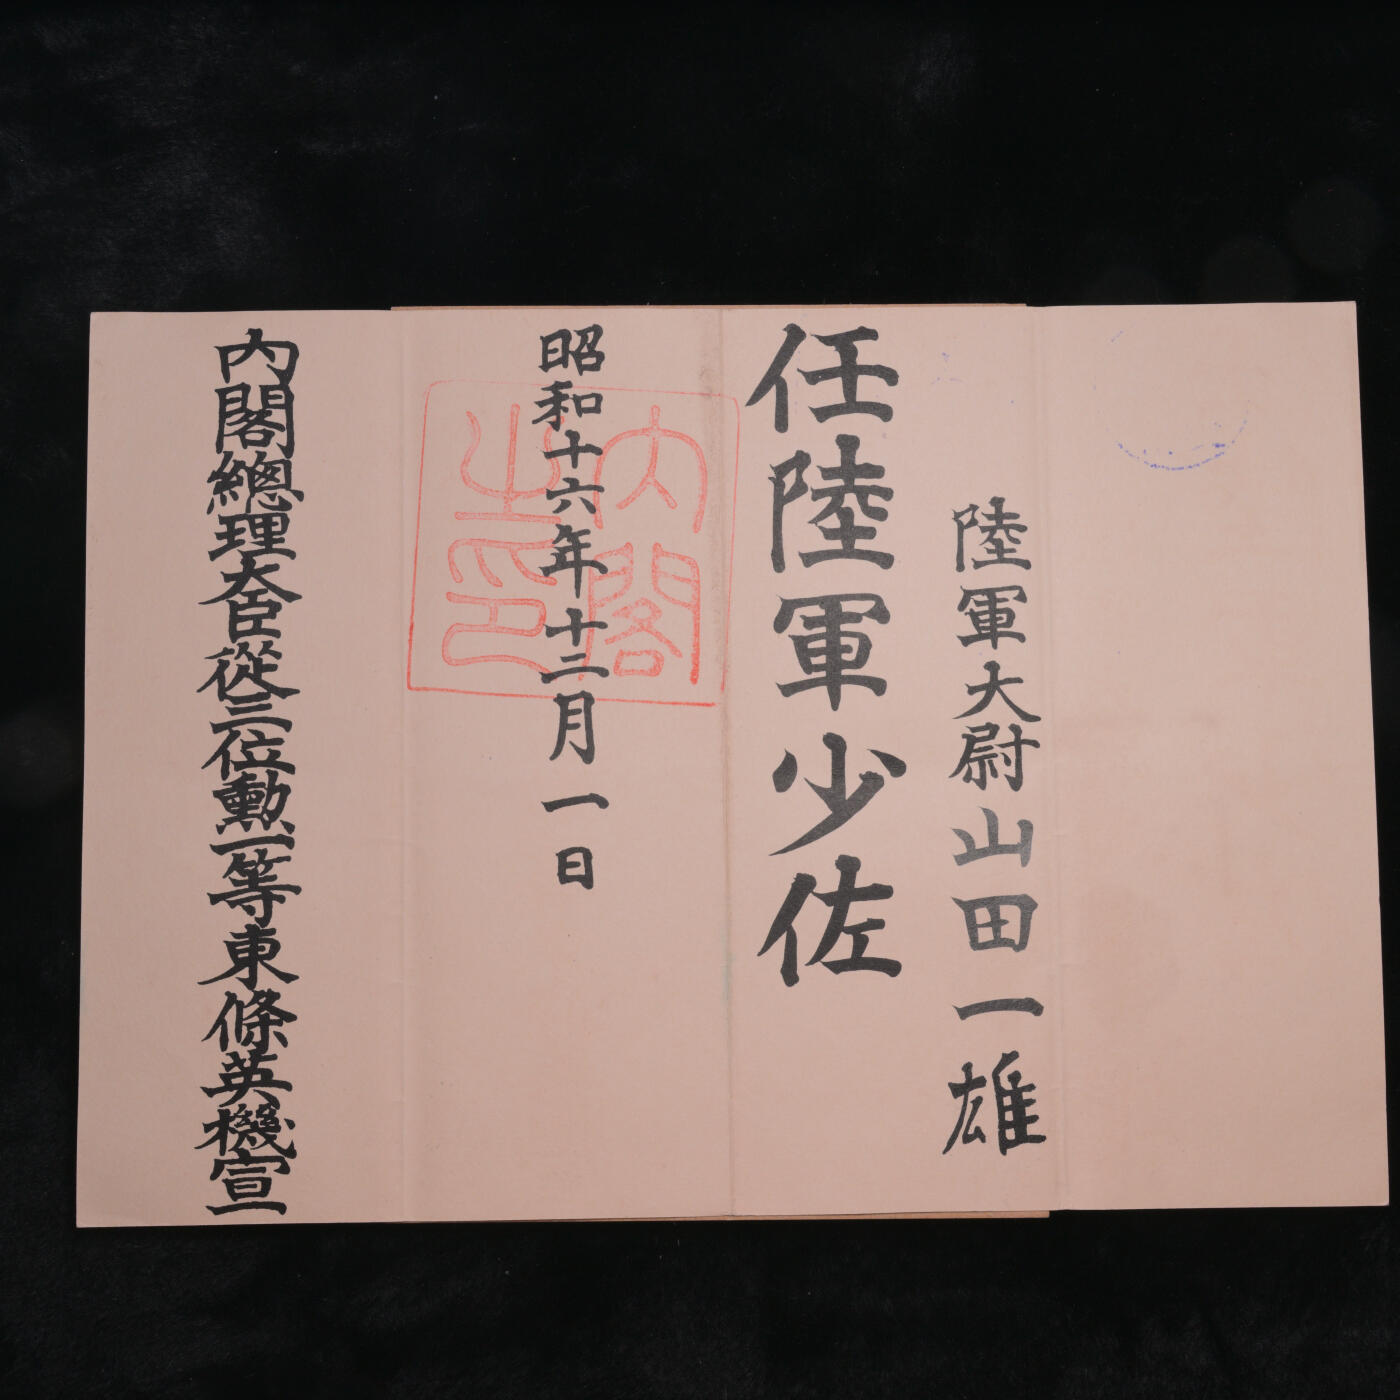 陸軍大尉山田一雄
任陸軍少佐
昭和十六年十二月一日
內閣總理大臣從三位勳一等東條英機宣
內閣之印